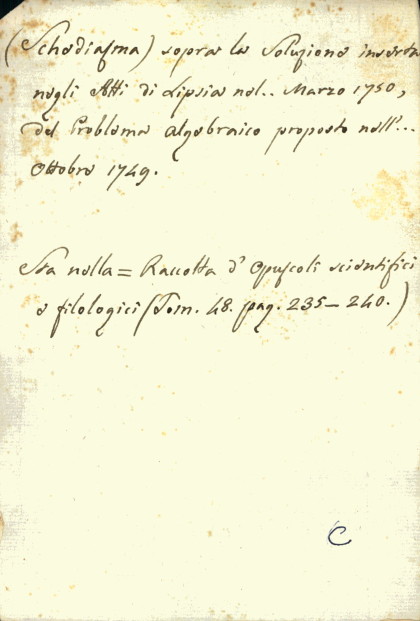 (Schediasma) sopra la Soluzione inserta
negli Atti di Lipsia nel.. Marzo 1750,
del Problema algebraico proposto nell'...
Ottobre 1749.
Sta nella = Raccolta d' Opuscoli scientifici
e filologici (Tom. 48. pag. 235-240.)
C